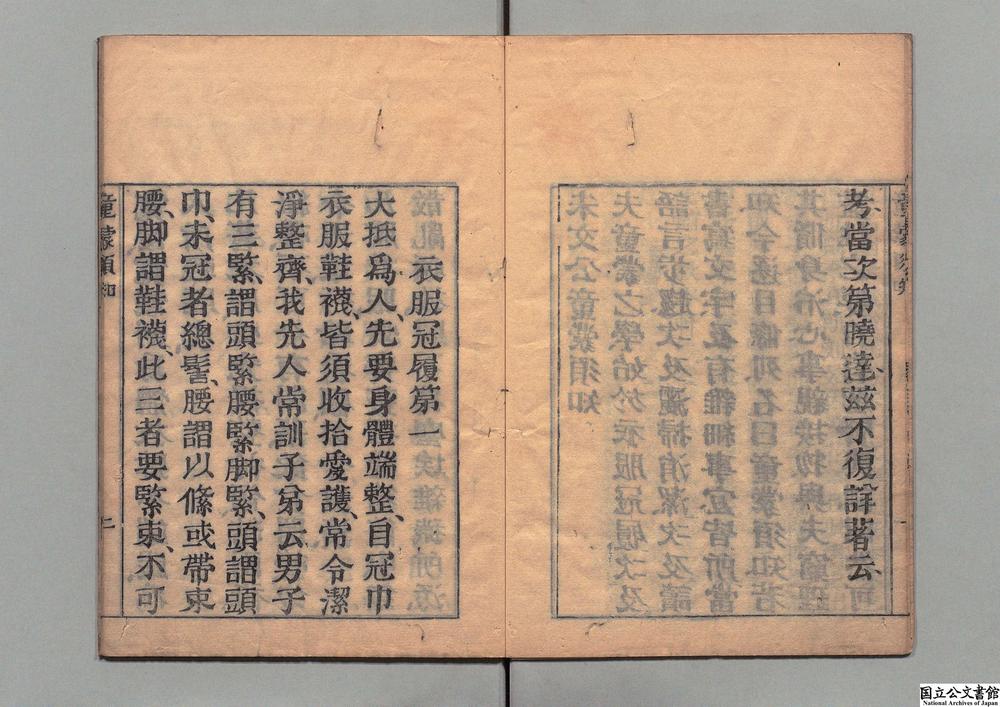 童蒙須知
一
考當次第曉達玆不復詳著云
衣服冠履第一
大抵爲人、先要身體端整、自冠巾
衣服鞋襪、皆須收拾愛護、常令潔
淨整齊、我先人常訓子弟云男子
有三緊、謂頭緊腰緊脚緊、頭謂頭
巾、未冠者總髻、腰謂以絛或帶束
腰、脚謂鞋襪、此三者要緊束、不可
童蒙須知
二
国立公文書館
National Archives of Japan